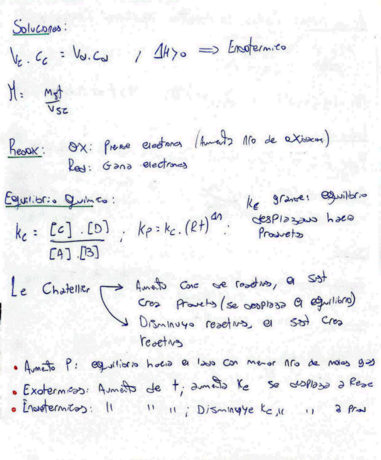 Soluciones:
Vc . Cc = Vd . Cd , ΔH>0 ⟹ Endotermico
M: mst
Vsc
Redox: OX: Pierde electrones (Aumenta Nro de oxidacion)
Red: Gana electrones
Equilibrio Quimico:
Kc = [C] . [D] ; Kp = Kc . (Rt)^Δn ;
[A] . [B]
Kc grande: equilibrio
desplazado hacia
Producto
Le Chatelier → Aumento Conc de reactivo, el sist
Crea Producto (se desplaza el equilibrio)
→ Disminuyo reactivo, el sist Crea
reactivo
• Aumento P: equilibrio hacia el lado con menor Nro de moles gas
• Exotermicas: Aumento de t, aumenta Kc se desplaza a Reac
• Endotermicas: 11 11 11 ; Disminuye Kc, 11 11 a Prod